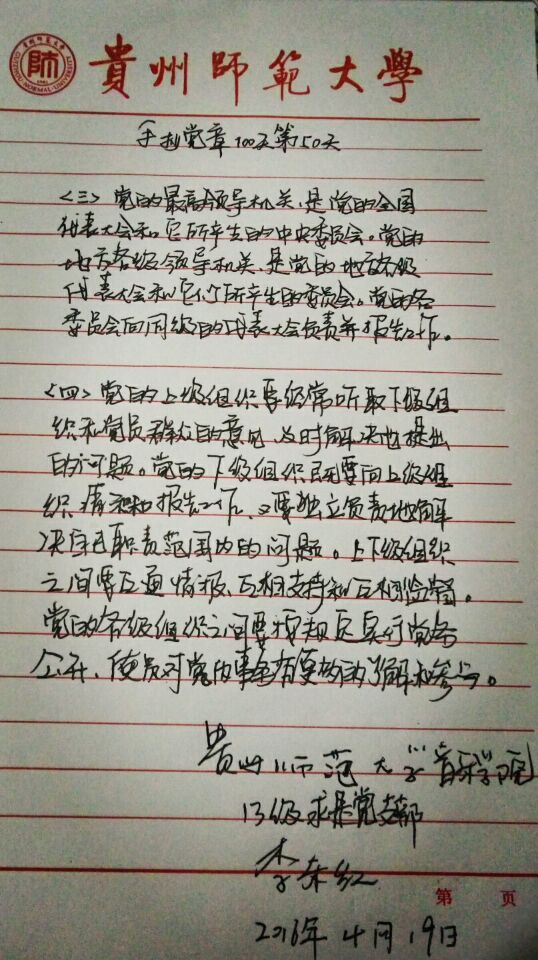 貴州師範大學
貴州師範大學
GUIZHOU NORMAL UNIVERSITY
師
1941
手抄党章100天第50天
〈三〉党的最高领导机关,是党的全国
代表大会和它所产生的中央委员会。党的
地方各级领导机关,是党的地方各级
代表大会和它们所产生的委员会。党的各级
委员会向同级的代表大会负责并报告工作。
〈四〉党的上级组织要经常听取下级组
织和党员群众的意见,及时解决他们提出
的问题。党的下级组织既要向上级组
织请示和报告工作,又要独立负责地解
决自己职责范围内的问题。上下级组织
之间要互通情报、互相支持和互相监督。
党的各级组织之间要按规定实行党务
公开,使党员对党内事务有更多的了解和参与。
贵州师范大学音乐学院
13级求是党支部
2016年4月19日
第 页